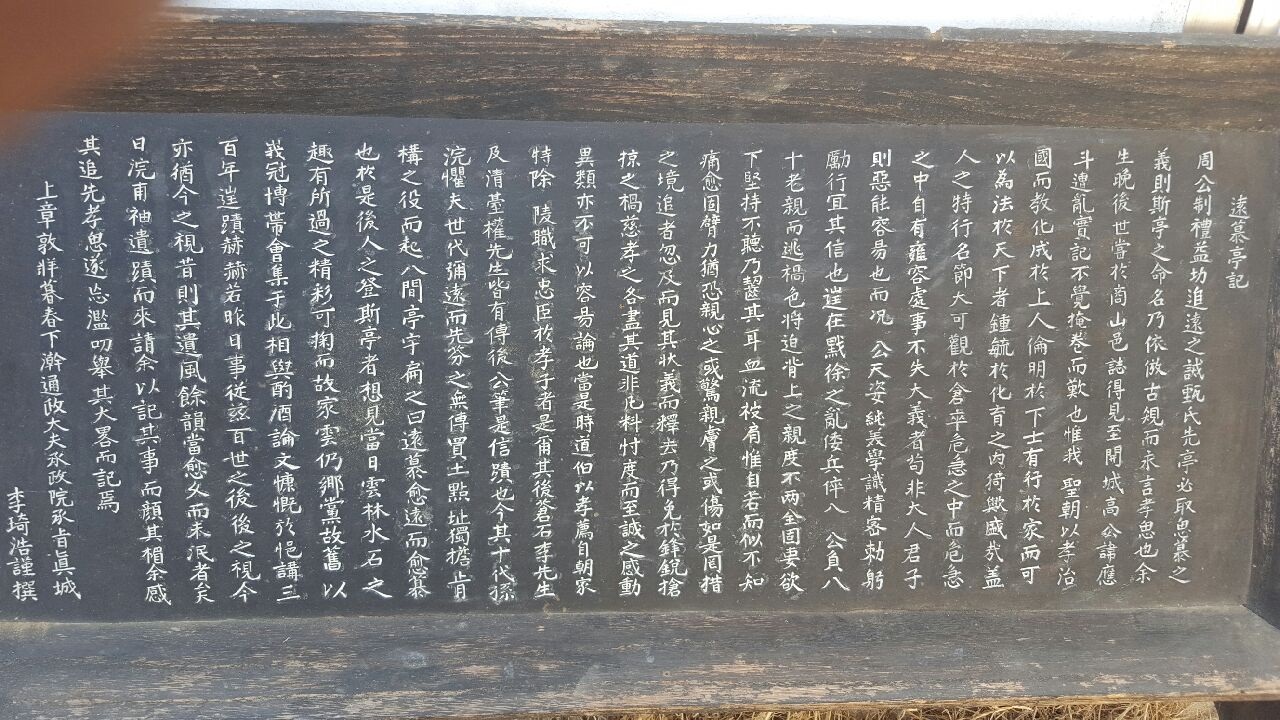 遠慕亭記
周公制禮益功追遠之誠甄氏先亭必取思慕之
義則斯亭之命名乃依倣古規而永言孝思也余
生晚後世嘗於商山邑誌得見至閒城高公諱應
斗遭亂實記不覺掩卷而歎也惟我 聖朝以孝治
國而敎化成於上人倫明於下士有行於家而可
以為法於天下者鍾毓於化育之內猗歟盛哉盖
人之特行名節大可觀於倉卒危急之中而危急
之中自有雍容處事不失大義者苟非大人君子
則惡能容易也而况 公天姿純美學識精密勅躬
勵行宜其信也逬在戰徐之亂倭兵倅八 公負八
十老親而逃禍色將迫背上之親度不两全固妻欲
下堅持不聽乃齧其耳血流被肩惟自若而似不知
痛愈固臂力猶恐親心之或驚親膚之或傷如是罔措
之境追者忽及而見其狀義而釋去乃得免於鋒銳搶
掠之禍慈孝之各盡其道非凡料忖度而至誠之感動
異類亦不可以容易論也當是時道伯以孝薦自朝家
特除 陵職求忠臣於孝子者是甭其後蒼石李先生
及清臺權先生皆有傳後公筆是信蹟也今其十代孫
浣懼夫世代彌遠而先芬之無傳買土點址獨擔肯
構之役而起八間亭宇扁之曰遠慕愈遠而愈慕
也於是後人之登斯亭者想見當日雲林水石之
趣有所過之精彩可掬而故家雲仍鄕黨故舊以
峩冠博帶會集于此相與酌酒論文慷慨於悒講三
百年逬蹟赫赫若昨日事従玆百世之後後之視今
亦猶今之視昔則其遺風餘韻當愈久而未泯者矣
日浣甫袖遺蹟而來請余以記其事而顔其楣余感
其追先孝思遂忘濫叨畧其大畧而記焉
上章敦牂暮春下澣通政大夫承政院承旨眞城
李琦浩謹撰